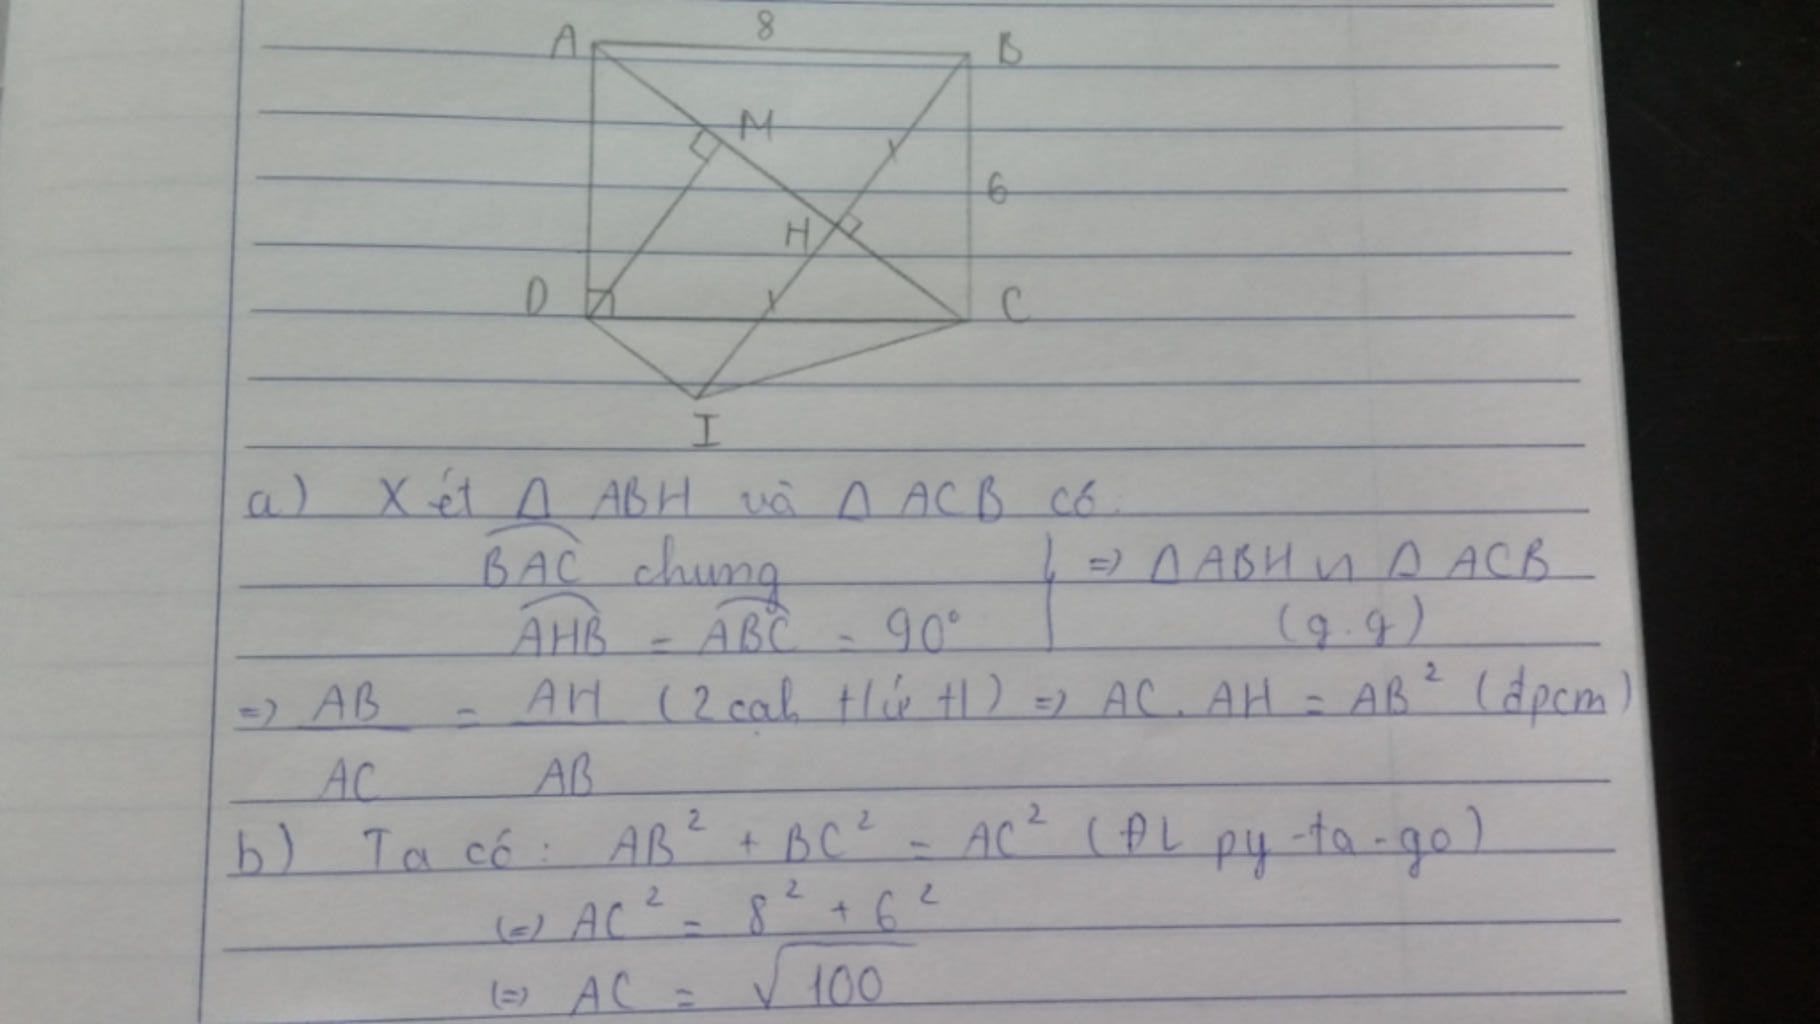 8
A B
M
6
H
D C
I
a) Xét Δ ABH và Δ ACB có:
BAC chung ⇒ Δ ABH ᔕ Δ ACB
AHB = ABC = 90° (g.g)
⇒ AB/AC = AH/AB (2 cạh tứ t) ⇒ AC . AH = AB² (đpcm)
b) Ta có: AB² + BC² = AC² (ĐL py-ta-go)
(=) AC² = 8² + 6²
(=) AC = √100